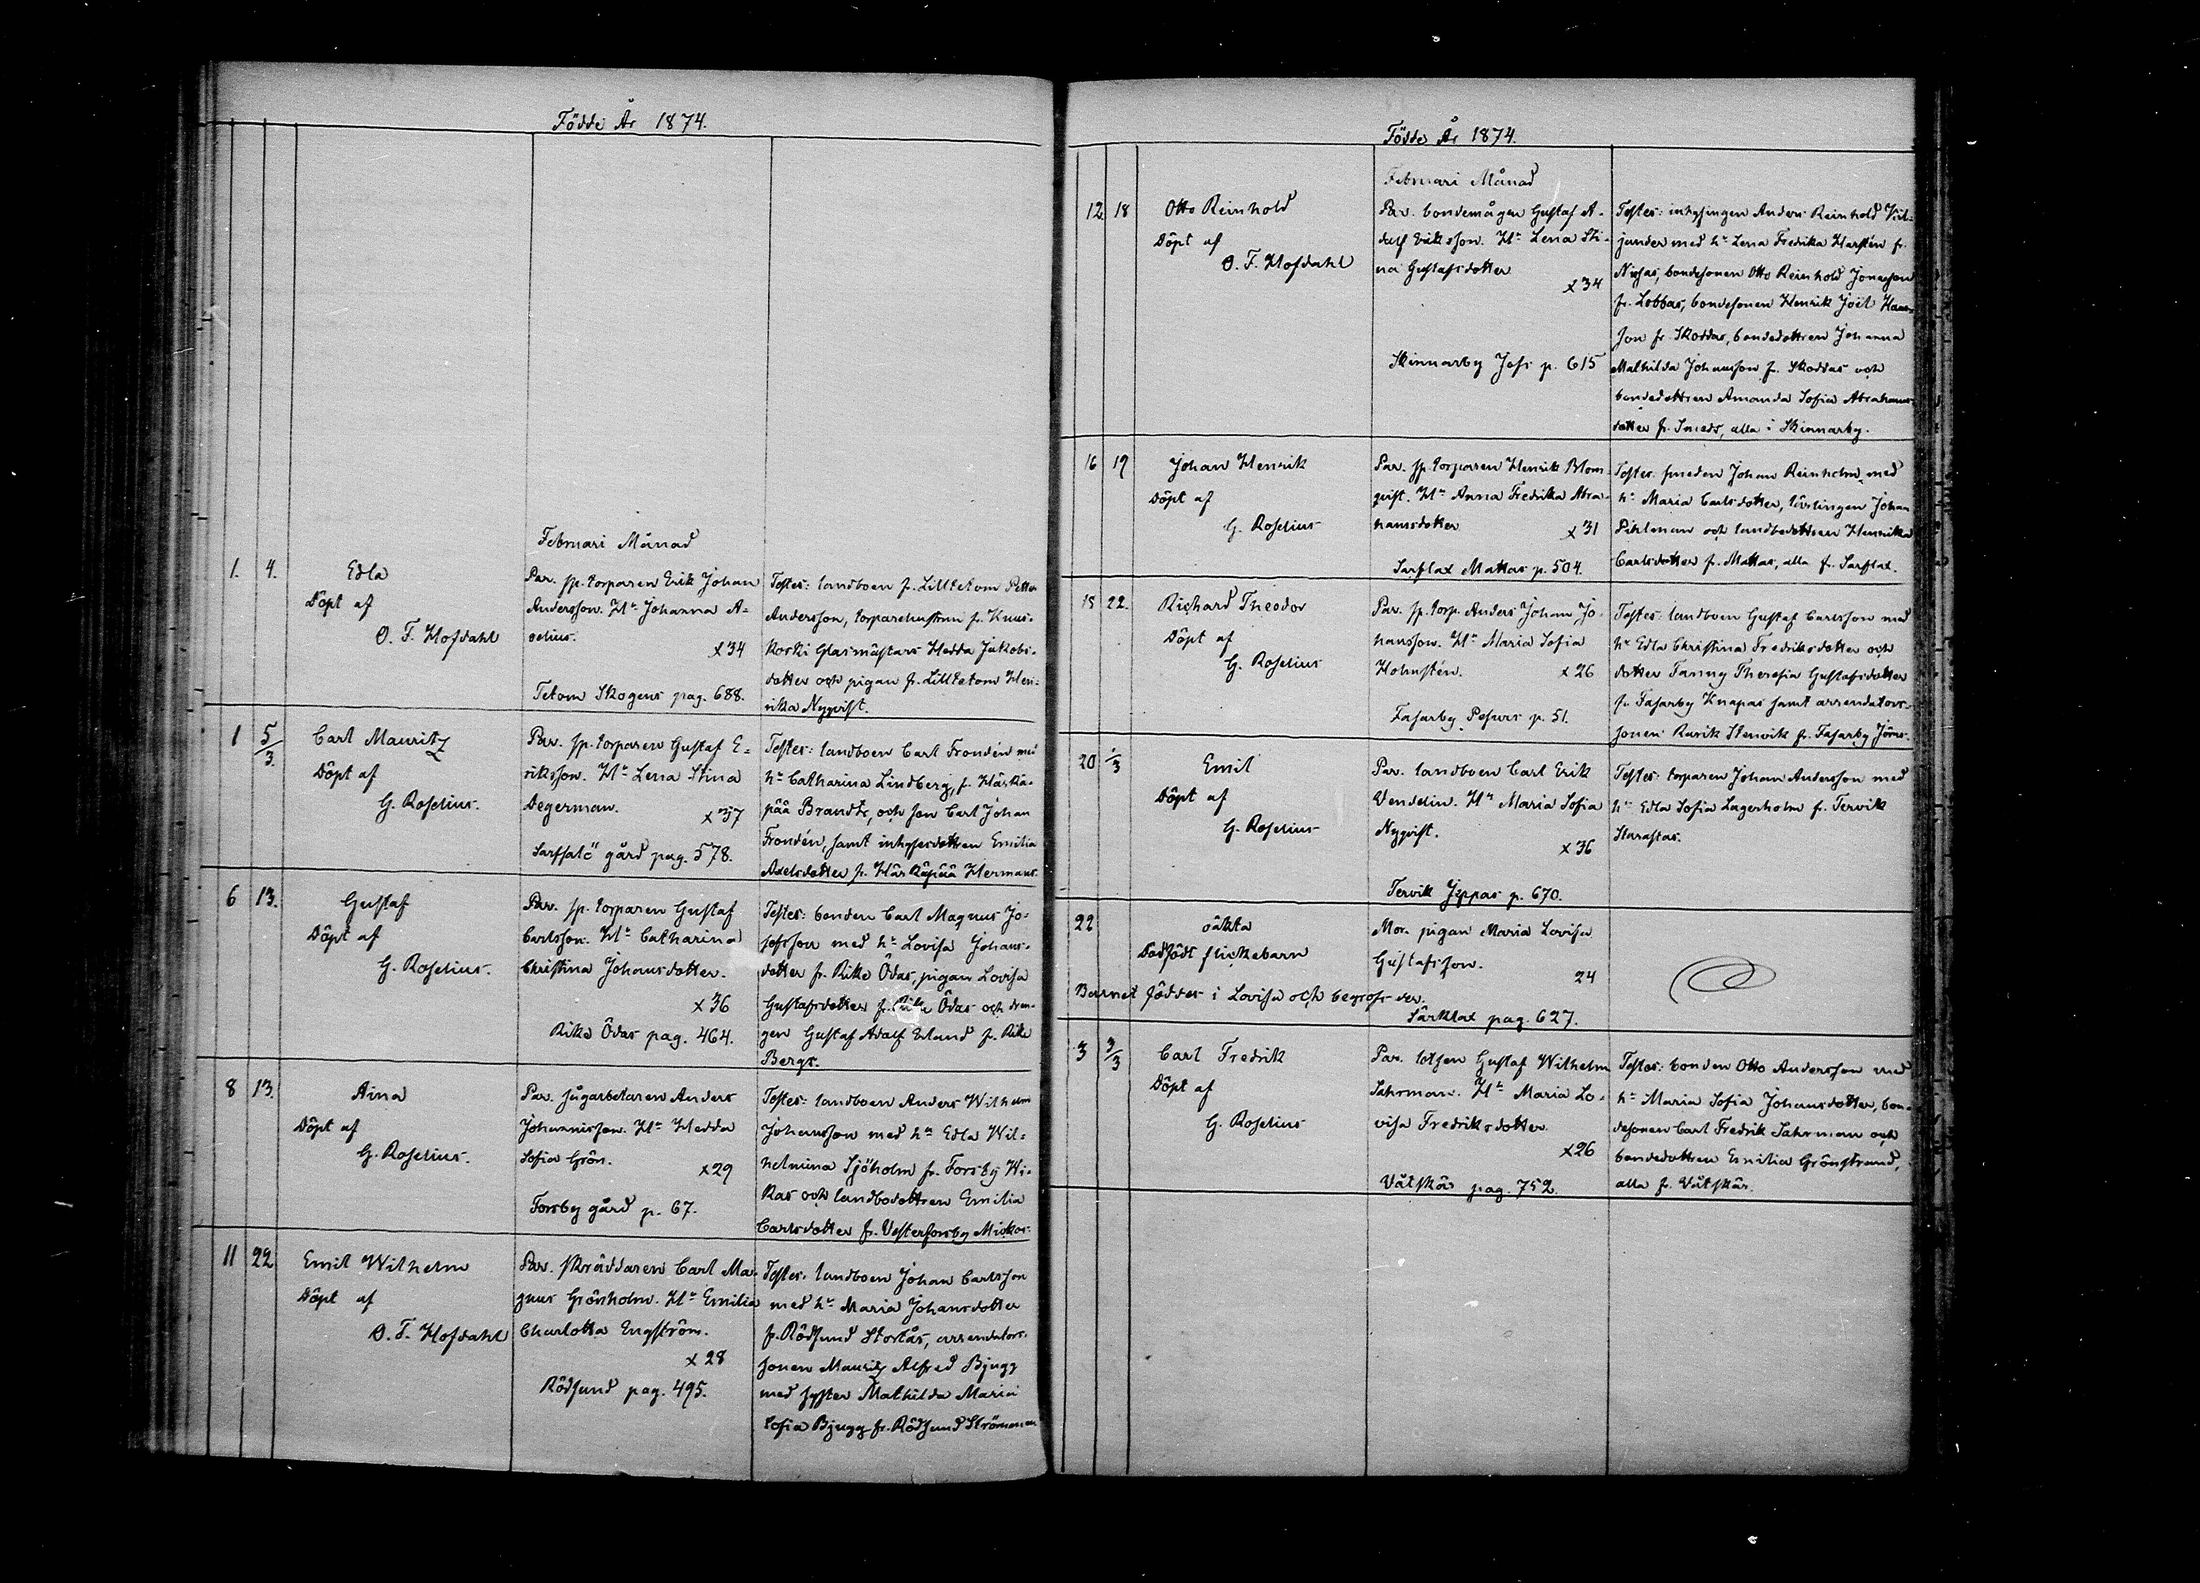 Födde År 1874.
Februari Månad
1. 4. Edla
Döpt af
O. F. Hofdahl
Par. sp. torparen Erik Johan
Andersson. H:n Johanna A-
delius.
x 34
Tetom Skogens pag. 688.
Testes: landboen fr. Lilltetom Petter
Andersson, torparehustrun fr. Kuus-
koski Glasmästars Hedda Jakobs-
dotter och pigan fr. Lilltetom Hen-
rika Nyqvist.
1 5/3. Carl Mauritz
Döpt af
G. Roselius.
Par. sp. torparen Gustaf E-
riksson. H:n Lena Stina
Degerman.
x 37
Sarfsalö gård pag. 578.
Testes: landboen Carl Frondén med
h:n Catharina Lindberg, f. Härkä-
pää Brandts, och son Carl Johan
Frondén, samt inhysesdottren Emilia
Axelsdotter fr. Härkäpää Hermans.
6 13. Gustaf
Döpt af
G. Roselius.
Par. sp. torparen Gustaf
Carlsson. H:n Catharina
Christina Johansdotter.
x 36
Rike Ödas pag. 464.
Testes: bonden Carl Magnus Jo-
sefsson med h:n Lovisa Johans-
dotter fr. Rike Ödas, pigan Lovisa
Gustafsdotter fr. Rike Ödas och dren-
gen Gustaf Adolf Eklund fr. Rike
Bergs.
8 13. Aina
Döpt af
G. Roselius.
Par. sågarbetaren Anders
Johannisson. H:n Hedda
Sofia Grön.
x 29
Forsby gård p. 67.
Testes: landboen Anders Wilhelm
Johansson med h:n Edla Wil-
helmina Sjöholm fr. Forsby Hi-
kas och landbodottren Emilia
Carlsdotter fr. Vesterforsby Mickos.
11 22 Emil Wilhelm
Döpt af
O. F. Hofdahl
Par. skräddaren Carl Mag-
nus Grönholm. H:n Emilia
Charlotta Engström.
x 28
Rödsund pag. 495.
Testes: landboen Johan Carlsson
med h:n Maria Johansdotter
fr. Rödsund Storås, arrendators-
sonen Mauritz Alfred Bjugg
med syster Mathilda Maria
Sofia Bjugg fr. Rödsund Strömman
Födde År 1874.
Februari Månad
12 18 Otto Reinhold
Döpt af
O. F. Hofdahl
Par. bondemågen Gustaf A-
dolf Eriksson. H:n Lena Sti-
na Gustafsdotter
x 34
Skinnarby Jofs p. 615
Testes: inhysingen Anders Reinhold Vil-
jander med h:n Lena Fredrika Harstén fr.
Nissas, bondesonen Otto Reinhold Jonasson
fr. Lobbas, bondesonen Henrik Joel Hans-
son fr. Skoddas, bondedottren Johanna
Mathilda Johansson fr. Skoddas och
bondedottren Amanda Sofia Abrahams-
dotter fr. Smeds, alla i Skinnarby.
16 19 Johan Henrik
Döpt af
G. Roselius
Par. sp. torparen Henrik Blom-
qvist. H:n Anna Fredrika Abra-
hamsdotter
x 31
Sarflax Mattas p. 504.
Testes: smeden Johan Reinholm med
h:n Maria Carlsdotter, lärlingen Johan
Pihlman och landbodottren Henrika
Carlsdotter fr. Mattas, alla fr. Sarflax.
15 22. Richard Theodor
Döpt af
G. Roselius
Par. sp. torp. Anders Johan Jo-
hansson. H:n Maria Sofia
Holmstén.
x 26
Fasarby Pesurs p. 51.
Testes: landboen Gustaf Carlsson med
h:n Edla Christina Fredriksdotter och
dotter Fanny Theresia Gustafsdotter
fr. Fasarby Knapas samt arrendators-
sonen Rurik Stenvik fr. Fasarby Jörns.
20 1/3 Emil
Döpt af
G. Roselius
Par. landboen Carl Erik
Vendelin. H:n Maria Sofia
Nyqvist.
x 36
Tervik Jeppas p. 670.
Testes: torparen Johan Andersson med
h:n Edla Sofia Lagerholm fr. Tervik
Staraftas.
22 oäkta
Dödfödt flickebarn
Mor. pigan Maria Lovisa
Gustafsson.
24
Barnet föddes i Lovisa och begrofs der.
Särklax pag. 627.
3 3/3 Carl Fredrik
Döpt af
G. Roselius
Par. lotsen Gustaf Wilhelm
Sahrman. H:n Maria Lo-
visa Fredriksdotter.
x 26
Våtskär pag. 752.
Testes: bonden Otto Andersson med
h:n Maria Sofia Johansdotter, bon-
desonen Carl Fredrik Sahrman och
bondedottren Emilia Grönstrand,
alla fr. Våtskär.